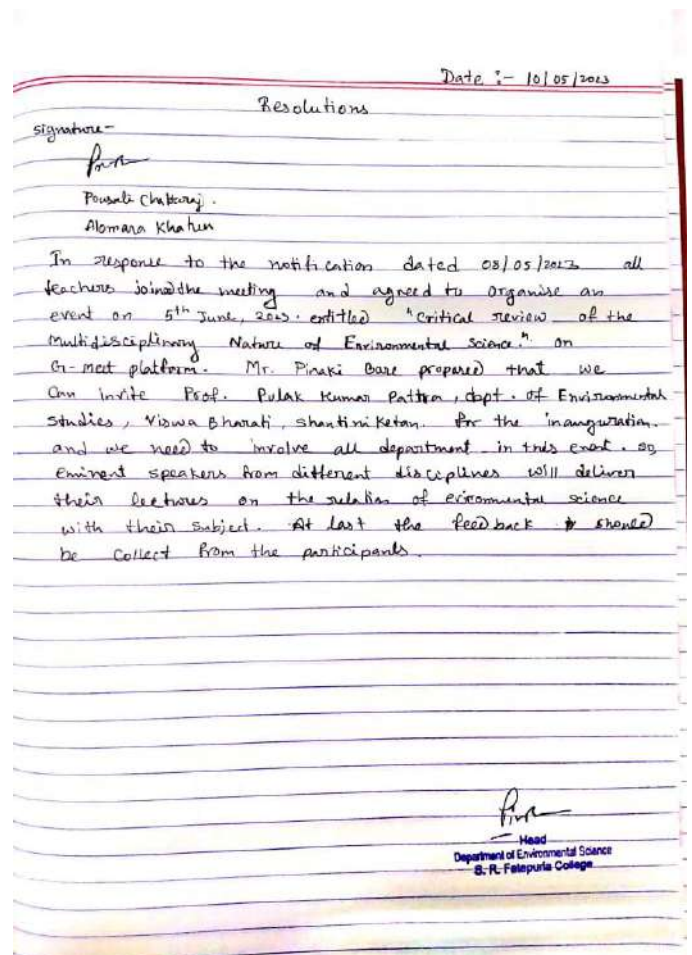 Date :- 10/05/2023
Resolutions
signature-
Pousali Chattaraj.
Alomara Khatun
In response to the notification dated 08/05/2023 all
teachers joined the meeting and agreed to organise an
event on 5th June, 2023. entitled "Critical review of the
Multidisciplinary Nature of Environmental Science." on
G-meet platform. Mr. Pinaki Bare prepared that we
Can invite Prof. Pulak Kumar Pattra, dept. of Environmental
Studies, Viswa Bharati, Shantiniketan. for the inauguration.
and we need to involve all department in this event. so,
eminent speakers from different disciplines will deliver
their lectures on the relation of evironmental science
with their subject. At last the feedback should
be collect from the participants.
Head
Department of Environmental Science
S. R. Fatepuria College